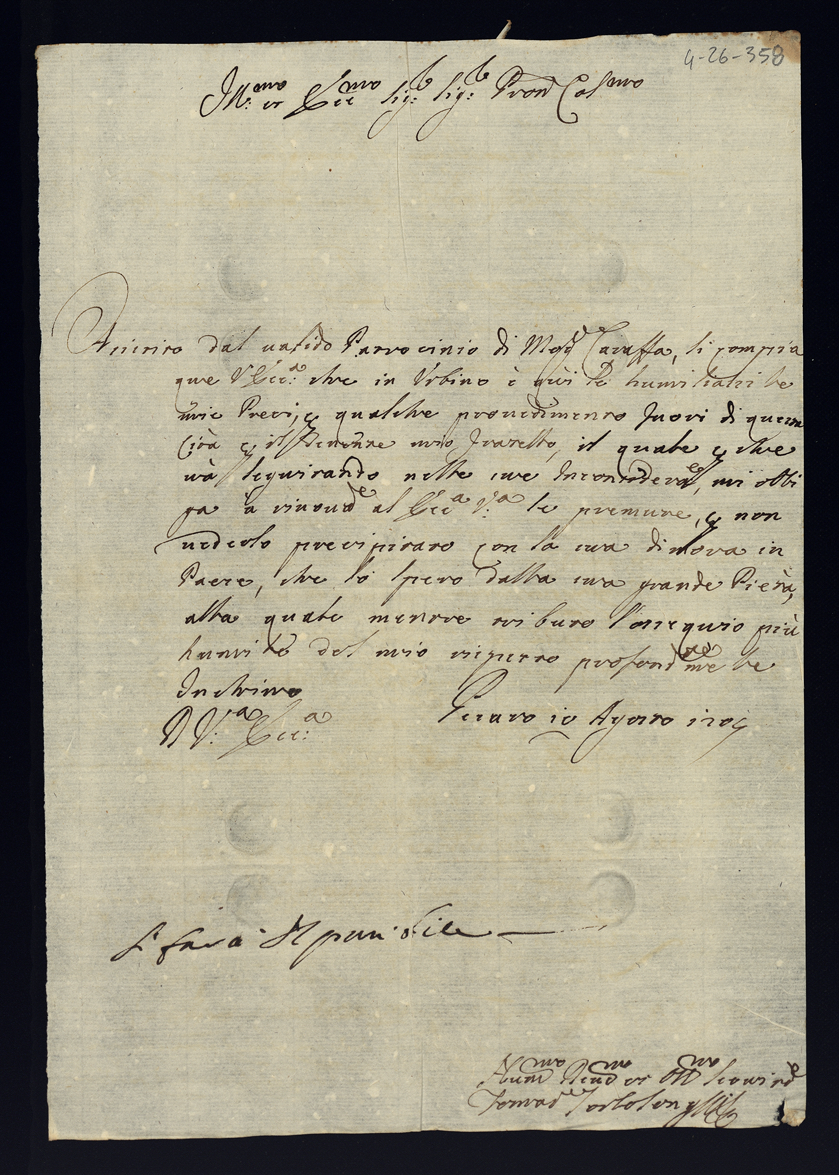 4-26-358
Ill:mo et Ecc:mo Sig:r Sig:r Pron Col:mo
Assistito dal valido Patrocinio di Mons.r Caraffa, si compia
que V. Ecc:a che in Urbino è qui le humiliassi le
mie Preci, per qualche provedimento fuori di questa
Città per il Tenente mio fratello, il quale perche
và seguitando nelle sue, mi obli
ga à rinovar al Ecc:a V:a le premure, per non
vederlo precipitato con la sua dimora in
Paese, che lo spero dalla sua grande Pietà,
alla quale mentre tributo l'ossequio più
humile del mio rispetto profondam.te le
Inchino
D V:a Ecc:a Pesaro 10 Agosto 1705
Si farà il possibile
Hum:mo Deu:mo et Obl:mo Seruitore